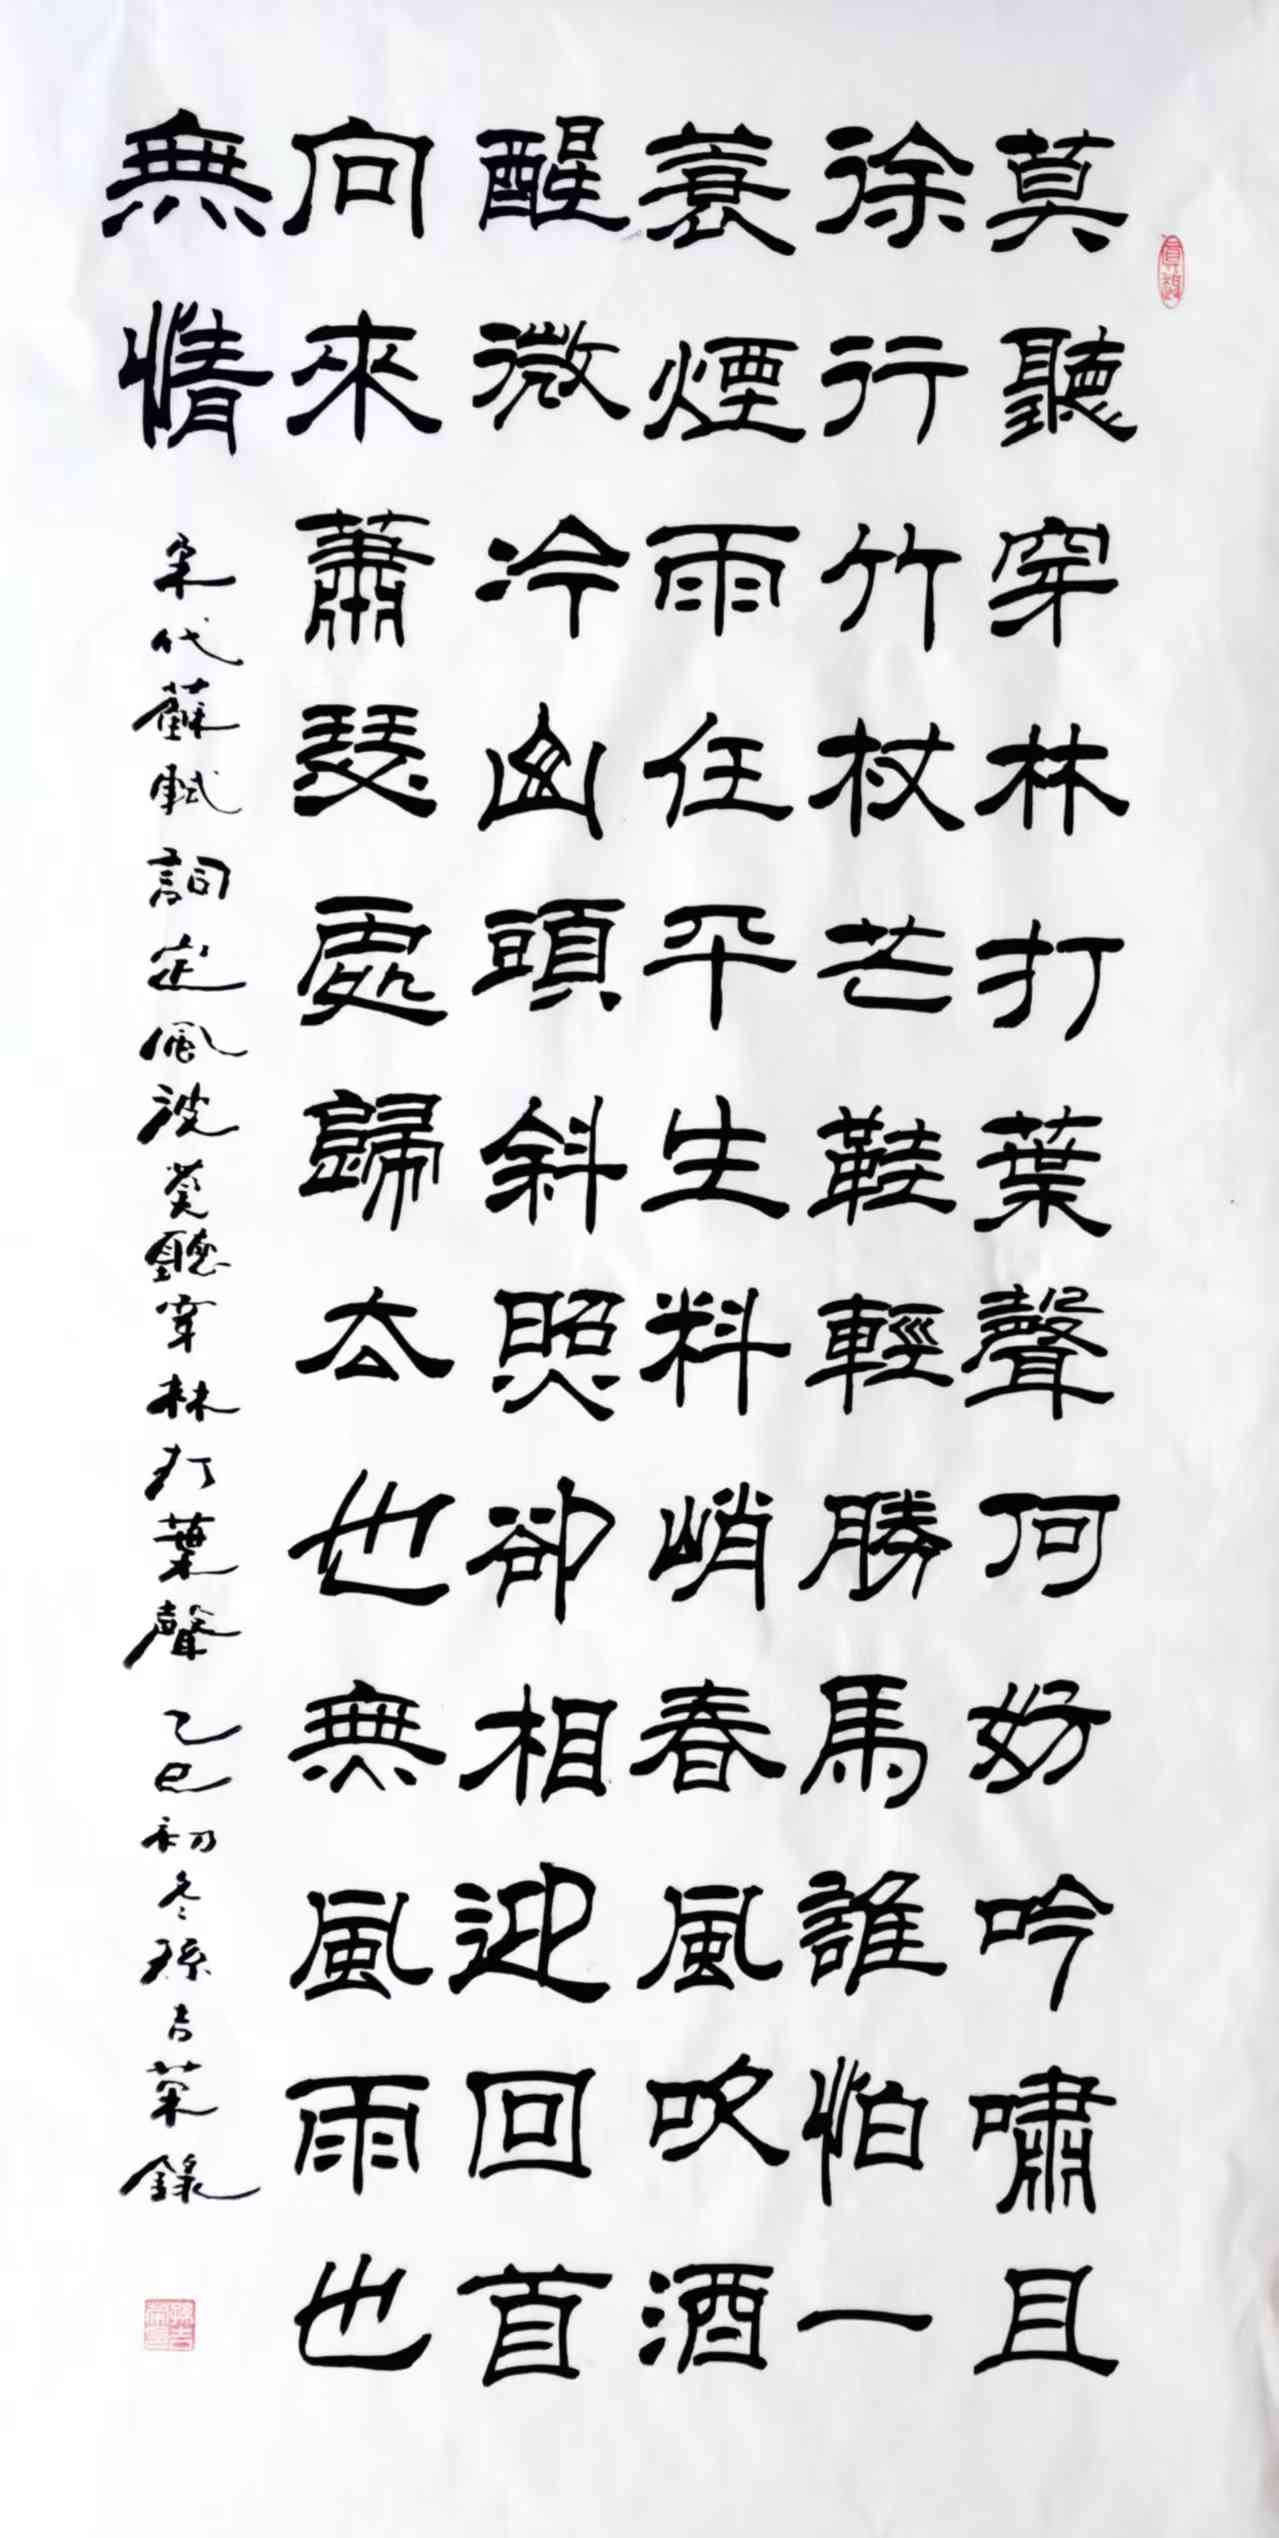 莫聽穿林打葉聲何妨吟嘯且
徐行竹杖芒鞋輕勝馬誰怕一
蓑煙雨任平生料峭春風吹酒
醒微冷山頭斜照卻相迎回首
向來蕭瑟處歸去也無風雨也
無情
宋代蘇軾詞定風波莫聽穿林打葉聲乙巳初冬孫吉荣錄